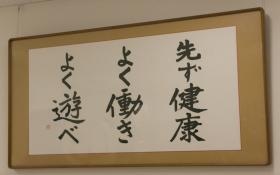 先ず健康
よく働き
よく遊べ